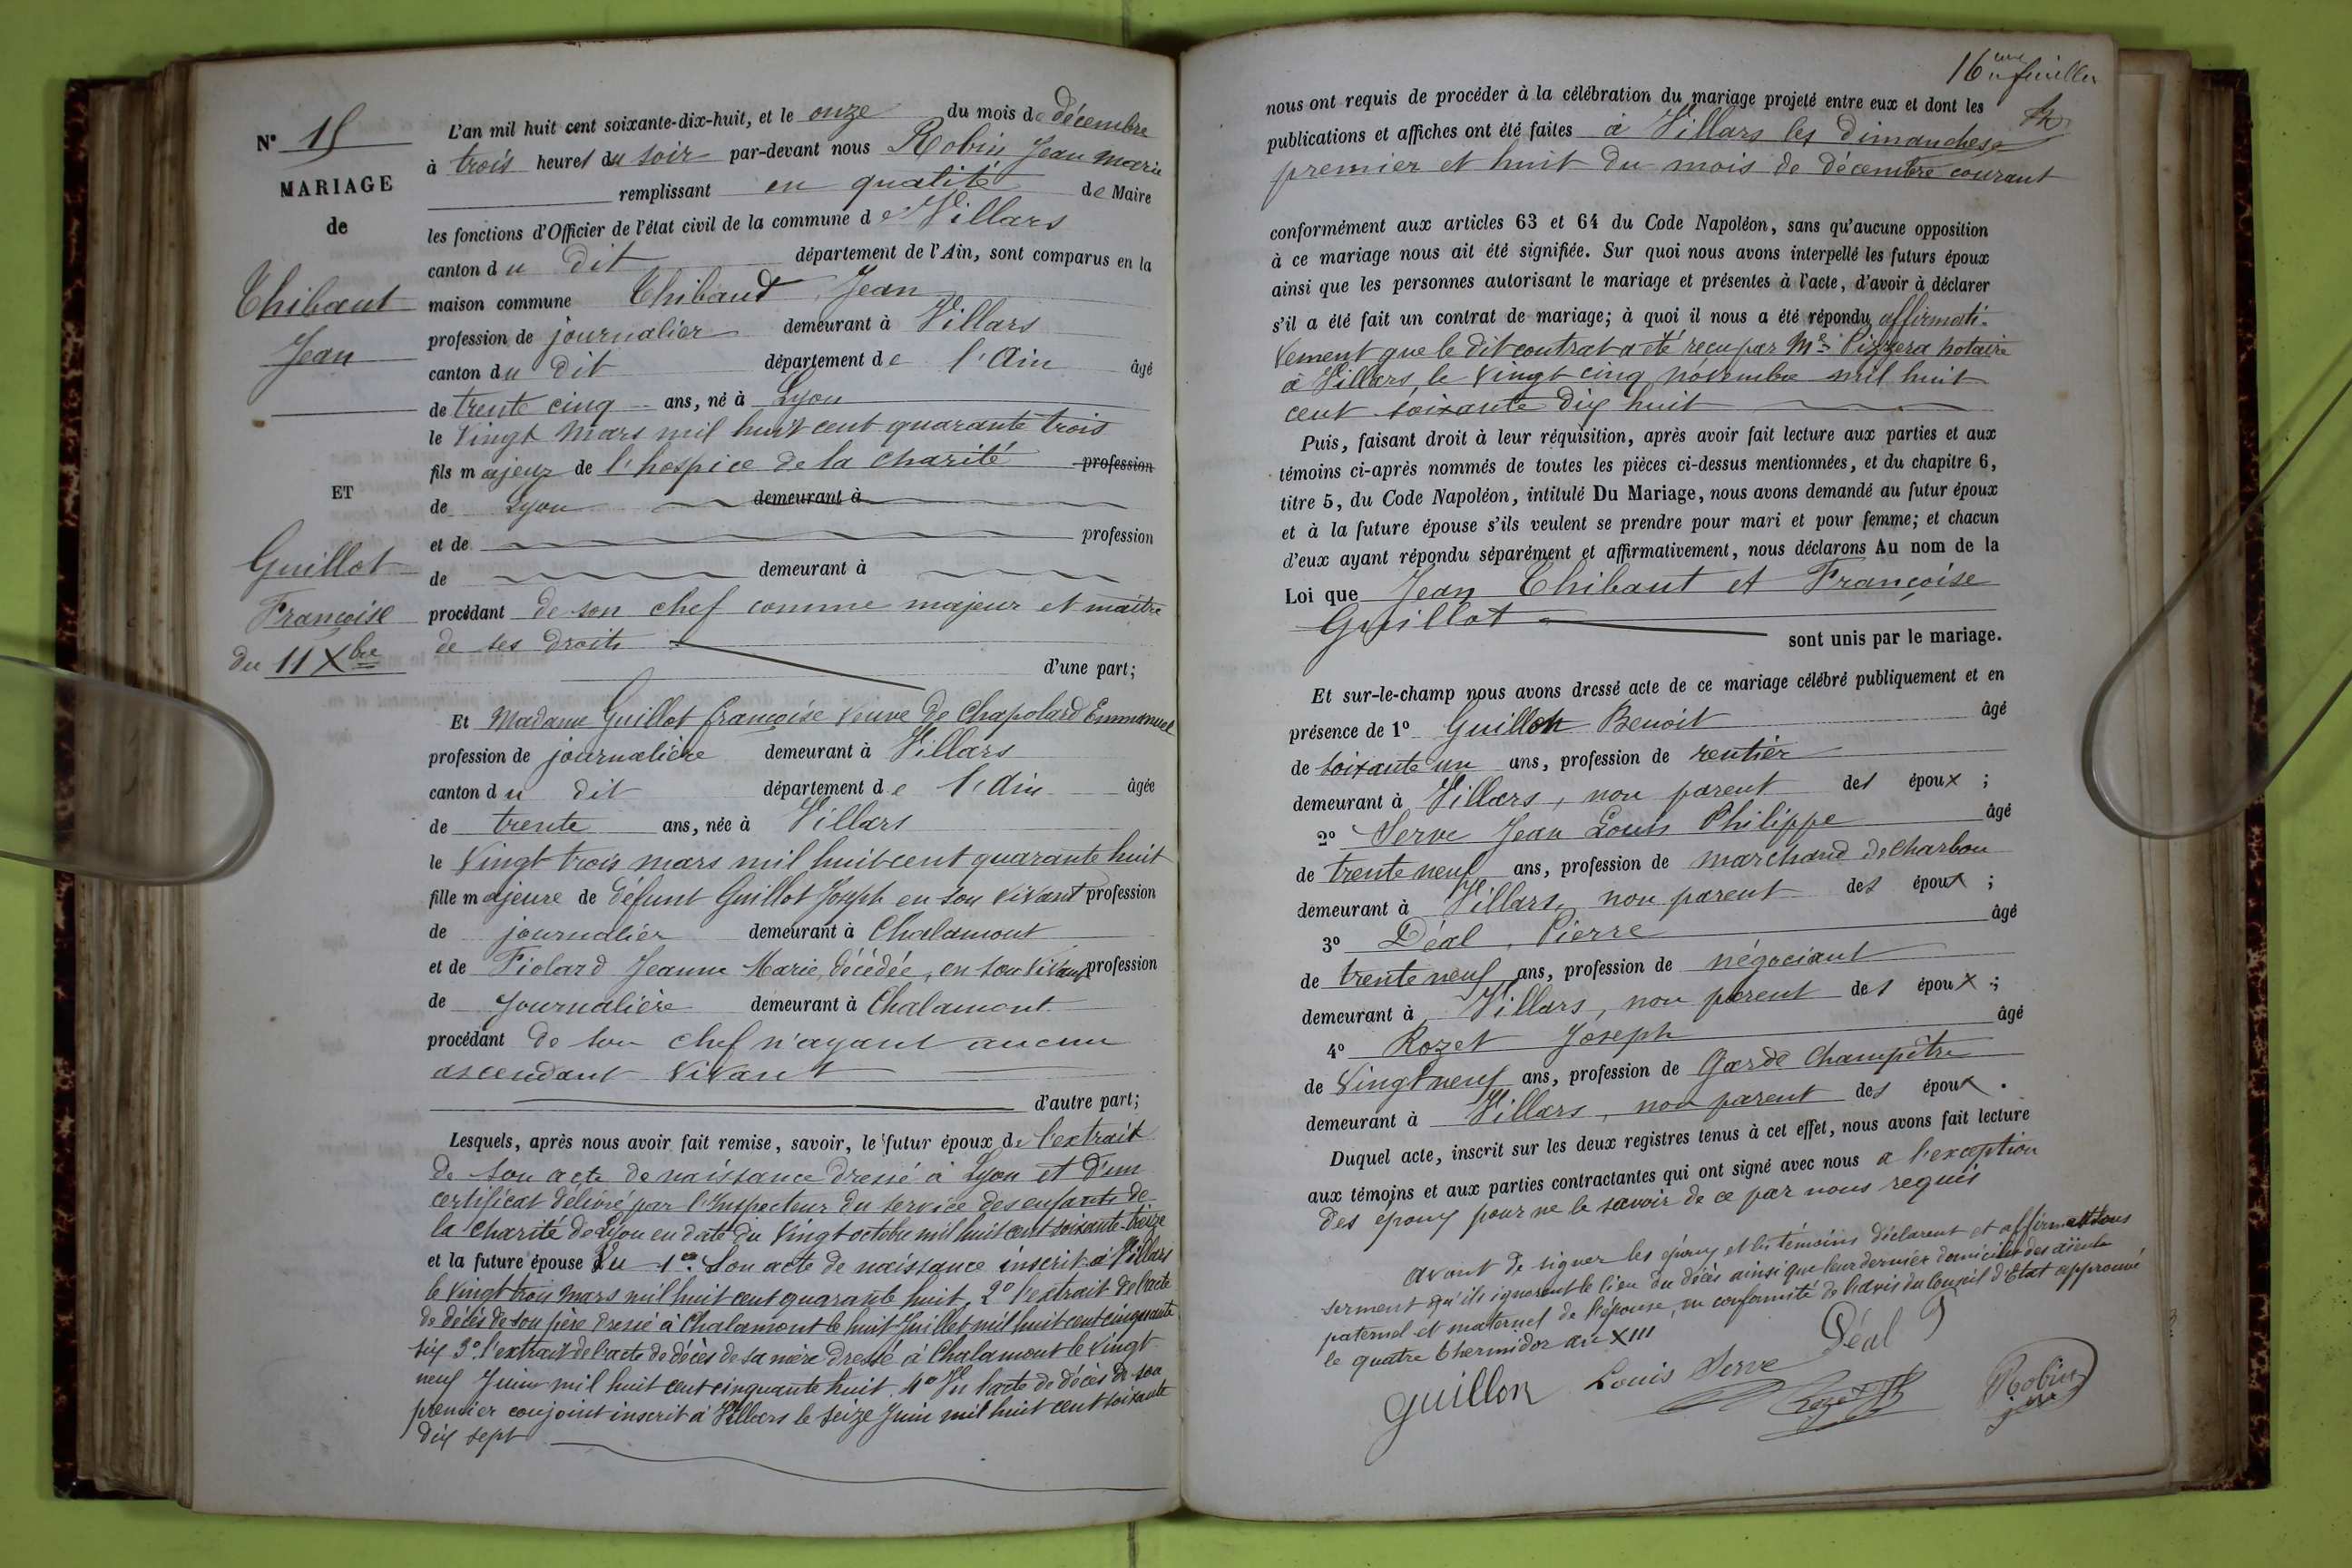 N° 15
MARIAGE
de
Thibaut
Jean
ET
Guillot
Françoise
du 11 Xbre
L'an mil huit cent soixante-dix-huit, et le onze du mois de décembre
à trois heures du soir par-devant nous Robin Jean Marie
remplissant en qualité de Maire
les fonctions d'Officier de l'état civil de la commune de Villars
canton du dit département de l'Ain, sont comparus en la
maison commune Thibaud Jean
profession de journalier demeurant à Villars
canton du dit département de l'Ain âgé
de trente cinq ans, né à Lyon
le vingt mars mil huit cent quarante trois
fils majeur de l'hospice de la charité profession
de Lyon demeurant à
et de profession
de demeurant à
procédant de son chef comme majeur et maître
de ses droits
d'une part;
Et Madame Guillot françoise veuve de Chapolard Emmanuel
profession de journalière demeurant à Villars
canton du dit département de l'Ain âgée
de trente ans, née à Villars
le vingt trois mars mil huit cent quarante huit
fille majeure de défunt Guillot Joseph en son vivant profession
de journalier demeurant à Chalamont
et de Fiolard Jeanne Marie, décédée, en son vivant profession
de journalière demeurant à Chalamont
procédant de son chef n'ayant aucun
ascendant vivant
d'autre part;
Lesquels, après nous avoir fait remise, savoir, le futur époux de l'extrait
de son acte de naissance dressé à Lyon et d'un
certificat délivré par l'Inspecteur du service des enfants de
la charité de Lyon en date du vingt octobre mil huit cent soixante-treize
et la future épouse Vu 1° Son acte de naissance inscrit à Villars
le vingt trois mars mil huit cent quarante huit, 2° l'extrait de l'acte
de décès de son père dressé à Chalamont le huit Juillet mil huit cent cinquante
six 3° l'extrait de l'acte de décès de sa mère dressé à Chalamont le vingt
neuf Juin mil huit cent cinquante huit. 4° Vu l'acte de décès de son
premier conjoint inscrit à Villars le seize Juin mil huit cent soixante
dix sept
16me feuillet
nous ont requis de procéder à la célébration du mariage projeté entre eux et dont les
publications et affiches ont été faites à Villars les dimanches
premier et huit du mois de décembre courant
conformément aux articles 63 et 64 du Code Napoléon, sans qu'aucune opposition
à ce mariage nous ait été signifiée. Sur quoi nous avons interpellé les futurs époux
ainsi que les personnes autorisant le mariage et présentes à l'acte, d'avoir à déclarer
s'il a été fait un contrat de mariage; à quoi il nous a été répondu affirmati-
vement que le dit contrat a été reçu par Me Pizzera notaire
à Villars, le vingt cinq novembre mil huit
cent soixante dix huit
Puis, faisant droit à leur réquisition, après avoir fait lecture aux parties et aux
témoins ci-après nommés de toutes les pièces ci-dessus mentionnées, et du chapitre 6,
titre 5, du Code Napoléon, intitulé Du Mariage, nous avons demandé au futur époux
et à la future épouse s'ils veulent se prendre pour mari et pour femme; et chacun
d'eux ayant répondu séparément et affirmativement, nous déclarons Au nom de la
Loi que Jean Thibaut et Françoise
Guillot
sont unis par le mariage.
Et sur-le-champ nous avons dressé acte de ce mariage célébré publiquement et en
présence de 1° Guillon Benoit âgé
de soixante un ans, profession de rentier
demeurant à Villars, non parent des époux ;
2° Serve Jean Louis Philippe âgé
de trente neuf ans, profession de marchand de charbon
demeurant à Villars, non parent des époux ;
3° Déal, Pierre âgé
de trente neuf ans, profession de négociant
demeurant à Villars, non parent des époux ;
4° Rozet Joseph âgé
de vingt neuf ans, profession de Garde Champêtre
demeurant à Villars, non parent des époux .
Duquel acte, inscrit sur les deux registres tenus à cet effet, nous avons fait lecture
aux témoins et aux parties contractantes qui ont signé avec nous a l'exception
des époux pour ne le savoir de ce par nous requis
avant de signer les époux et les témoins déclarent et affirment sous
serment qu'ils ignorent le lieu du décès ainsi que leur dernier domicile des aïeuls
paternel et maternel de l'épouse, en conformité de l'avis du Conseil d'Etat approuvé
le quatre thermidor an XIII
Déal
Guillon Louis Serve Rozet Robin